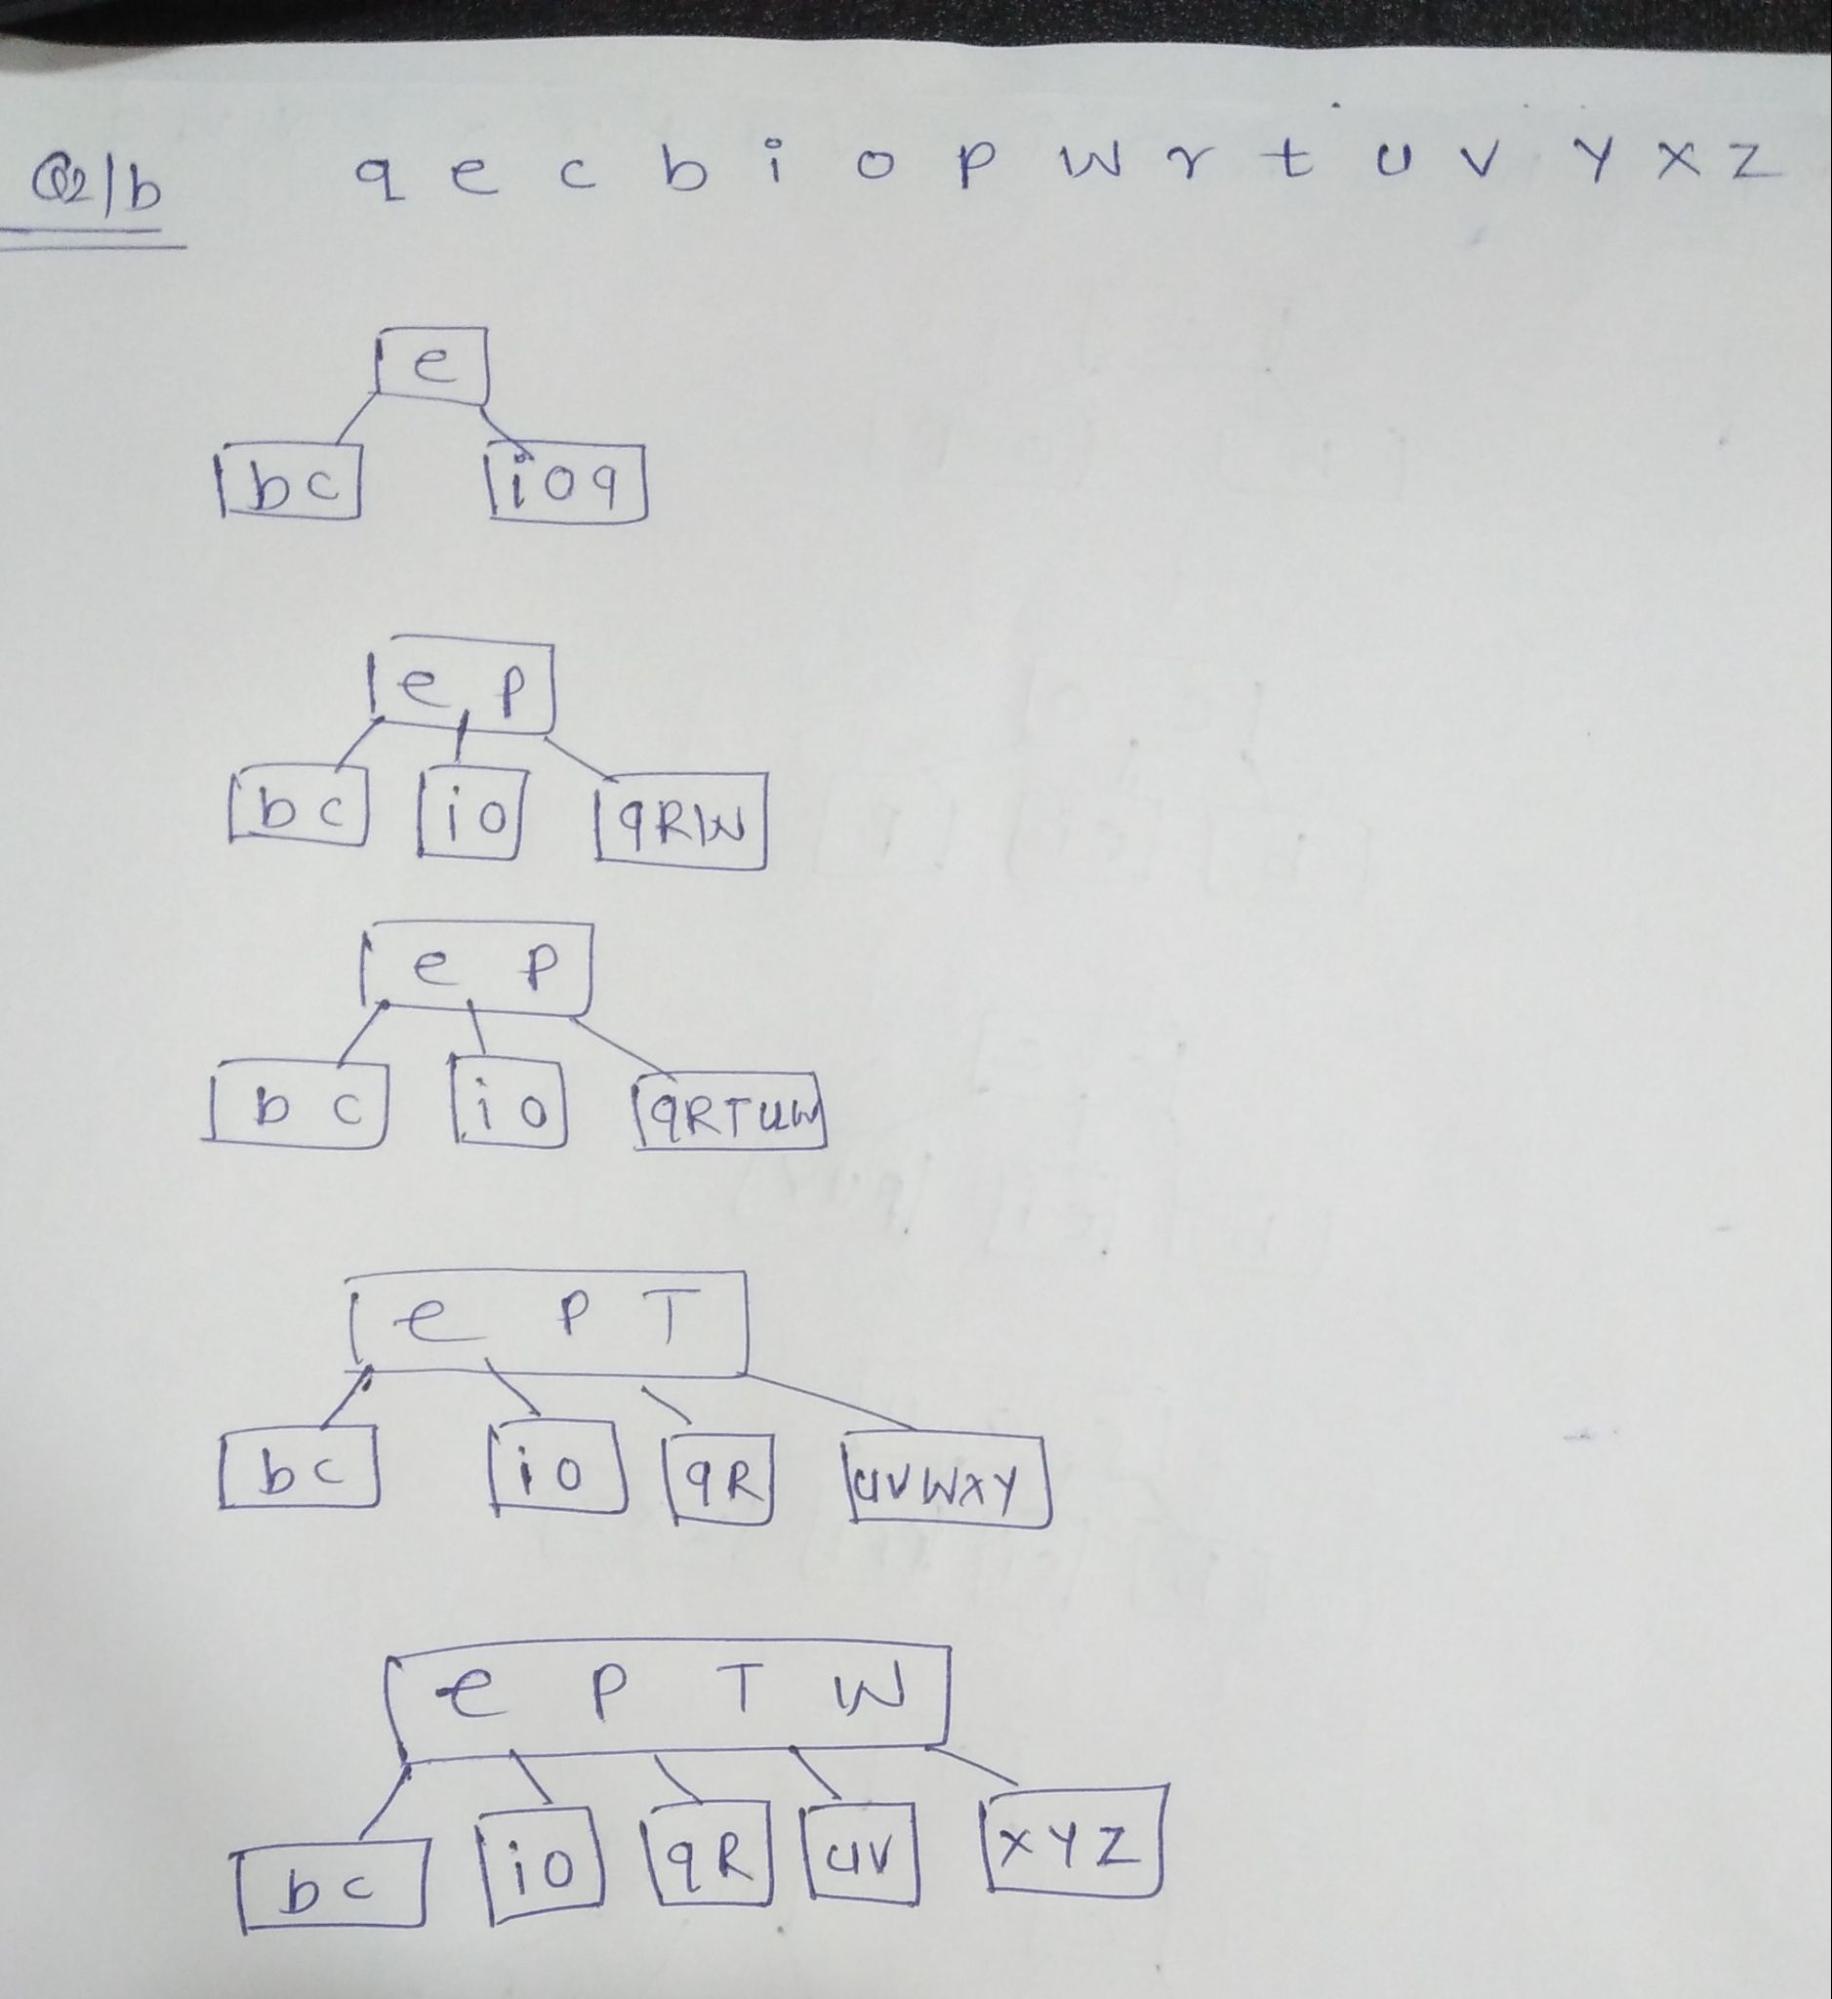 Q2/b q e c b i o p w r t u v y x z
e
bc ioq
e p
bc io qRW
e p
b c io qRTUW
e P T
bc io qR uvwxy
e P T W
bc io qR uv XYZ